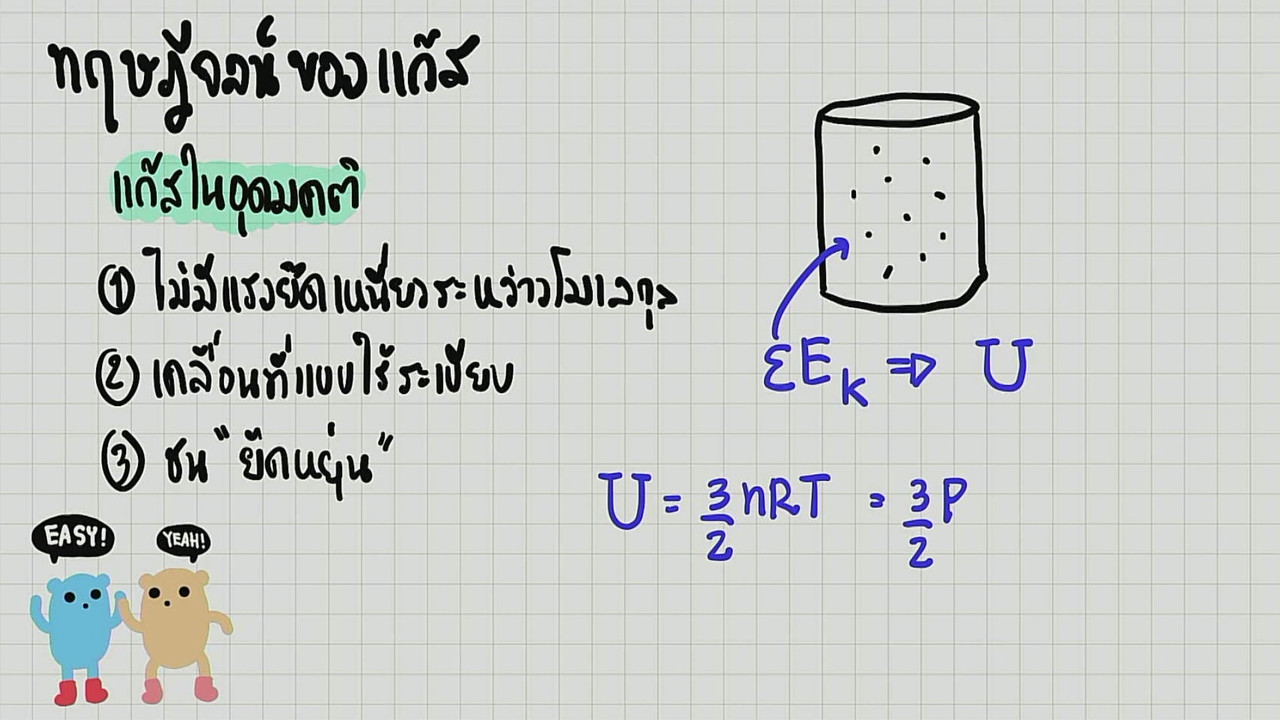 ทฤษฎีจลน์ของแก๊ส
แก๊สในอุดมคติ
① ไม่มีแรงยึดเหนี่ยวระหว่างโมเลกุล
② เคลื่อนที่แบบไร้ระเบียบ
③ ชน "ยืดหยุ่น"
ΣE_k ⇒ U
U = 3/2 nRT = 3/2 P
EASY!
YEAH!